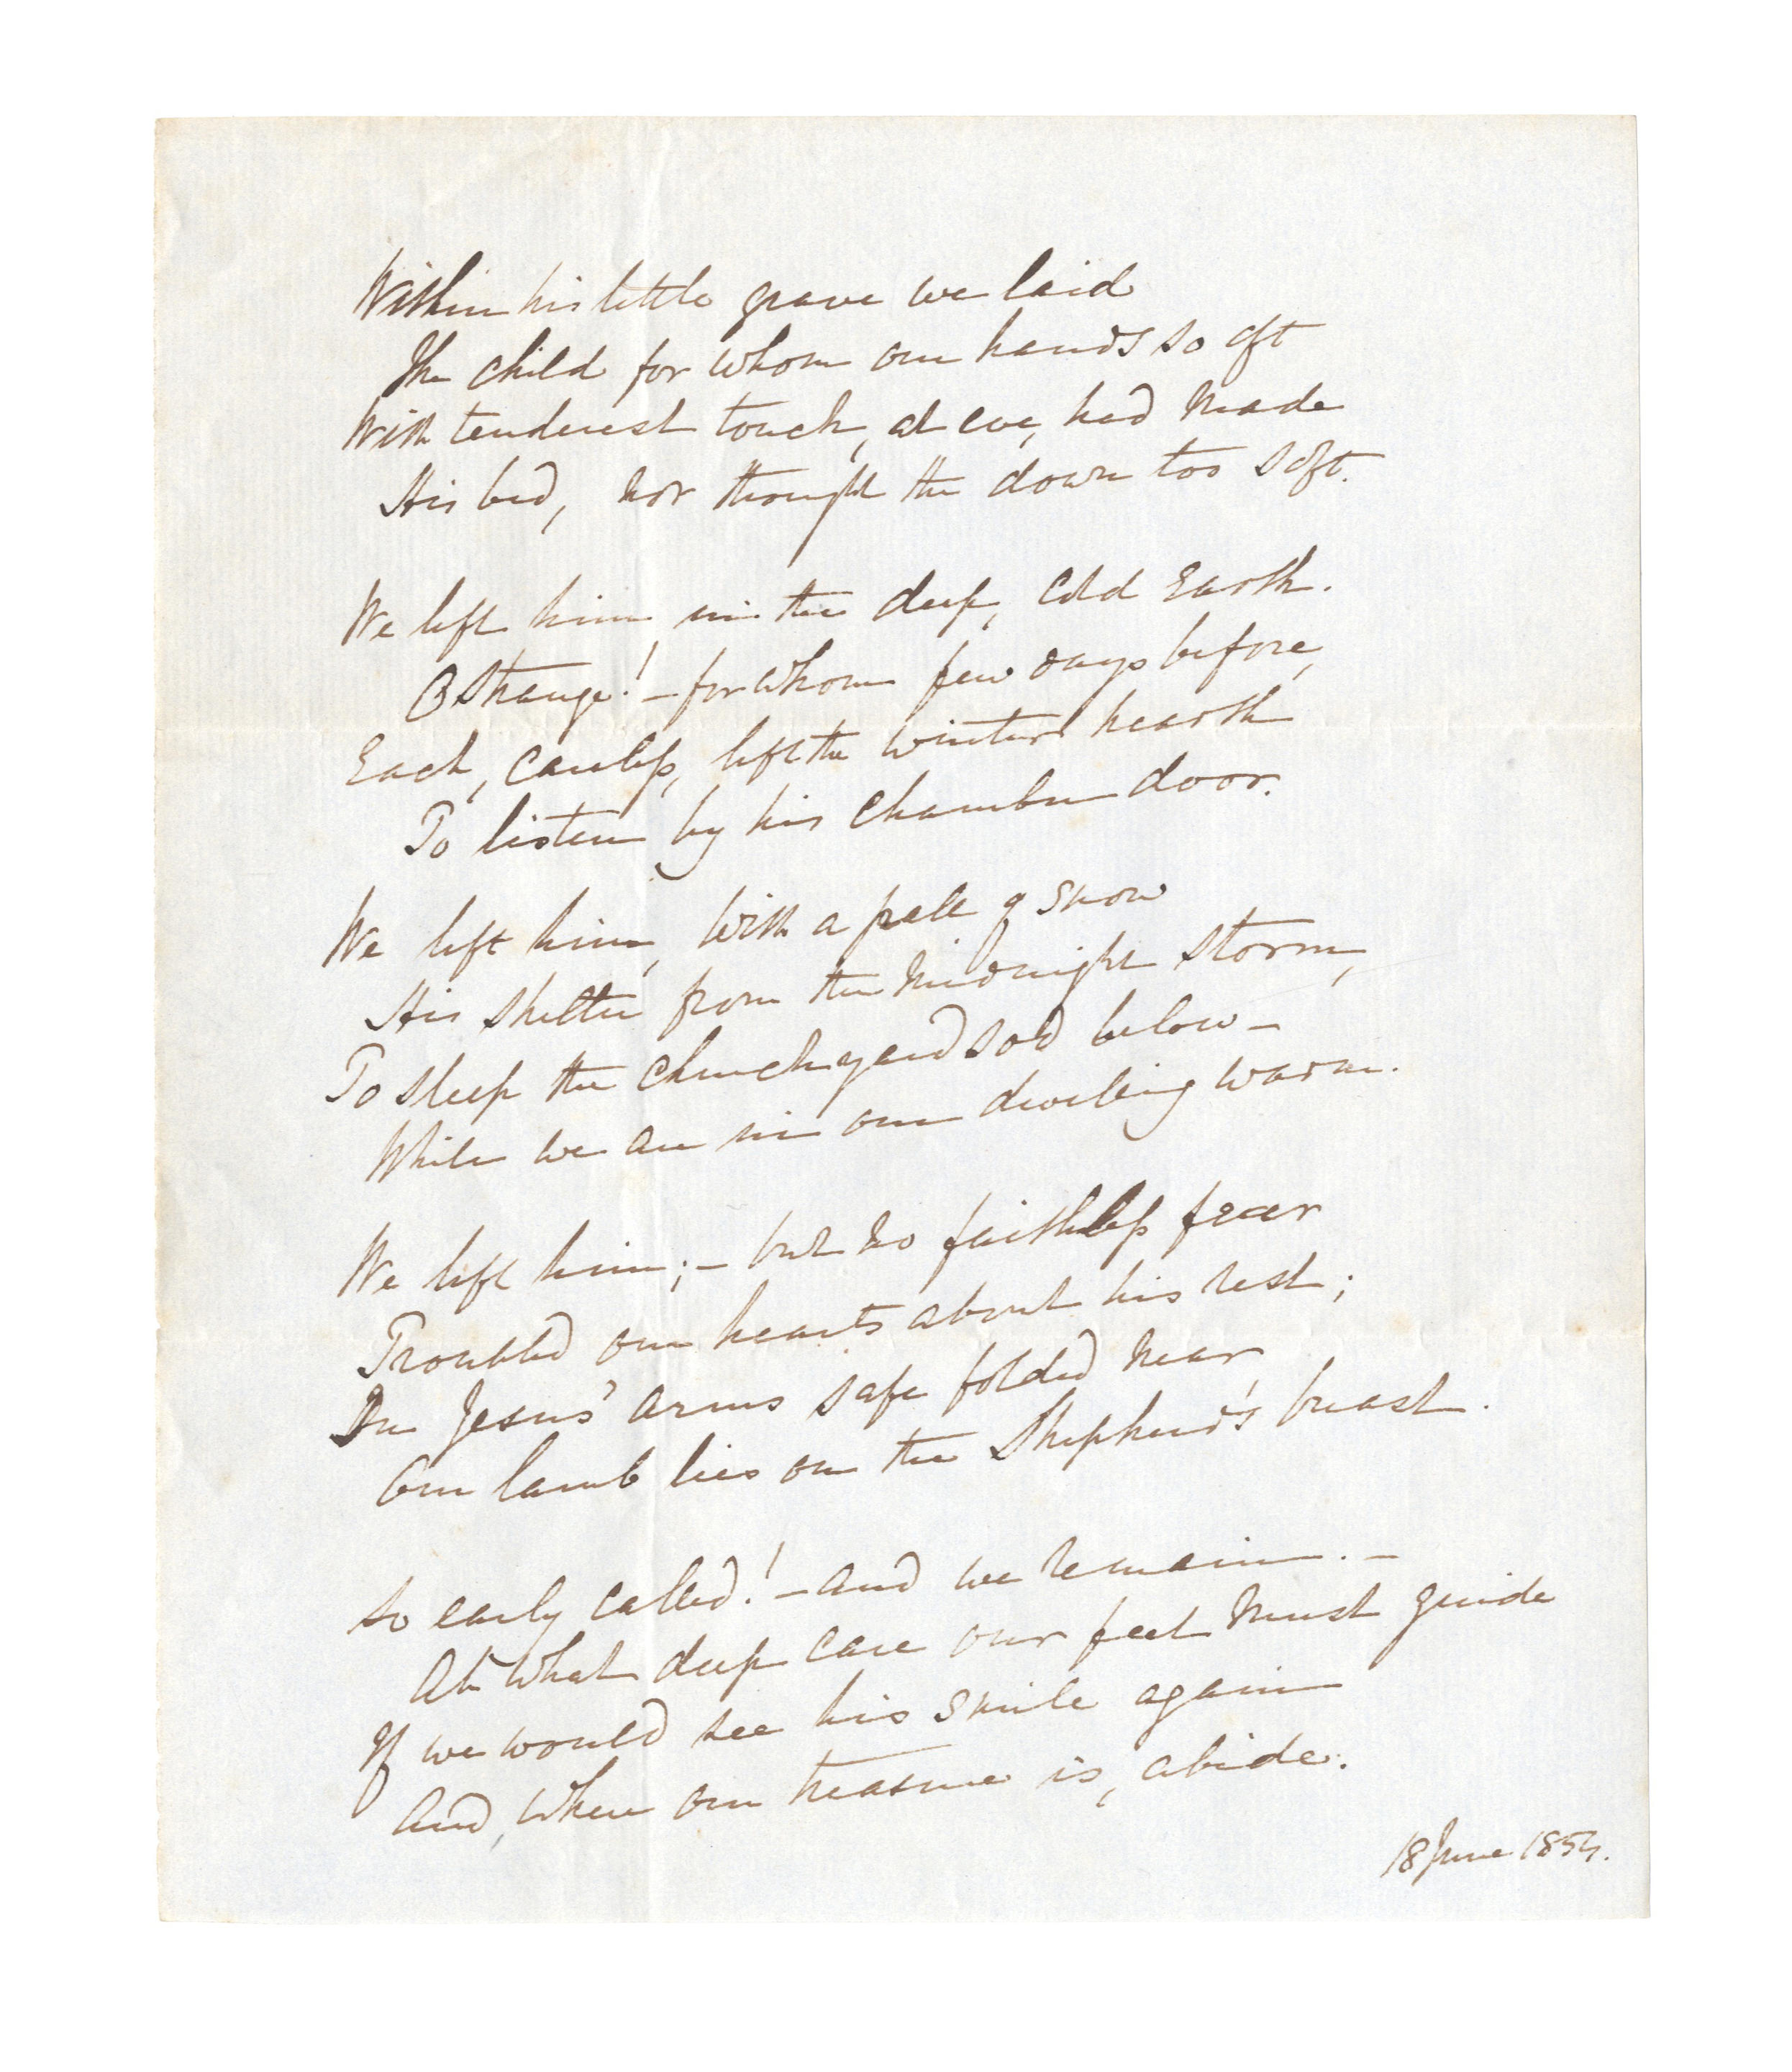 Within his little grave we laid
The child for whom our hands so oft
With tenderest touch, at eve, had made
His bed, nor thought the down too soft.
We left him in the deep, cold Earth.
O strange! – for whom few days before,
Each, careless, left the winter hearth
To listen by his chamber door.
We left him, with a pall of snow
His shelter from the midnight storm,
To sleep the churchyard sod below –
While we are in our dwelling warm.
We left him; – but no faithless fear
Troubled our hearts about his rest;
In Jesus' arms safe folded near,
Our lamb lies on the Shepherd's breast.
So early called! – And we remain. –
At what deep care our feet must guide
If we would see his smile again
And, where our treasure is, abide.
18 June 1854.